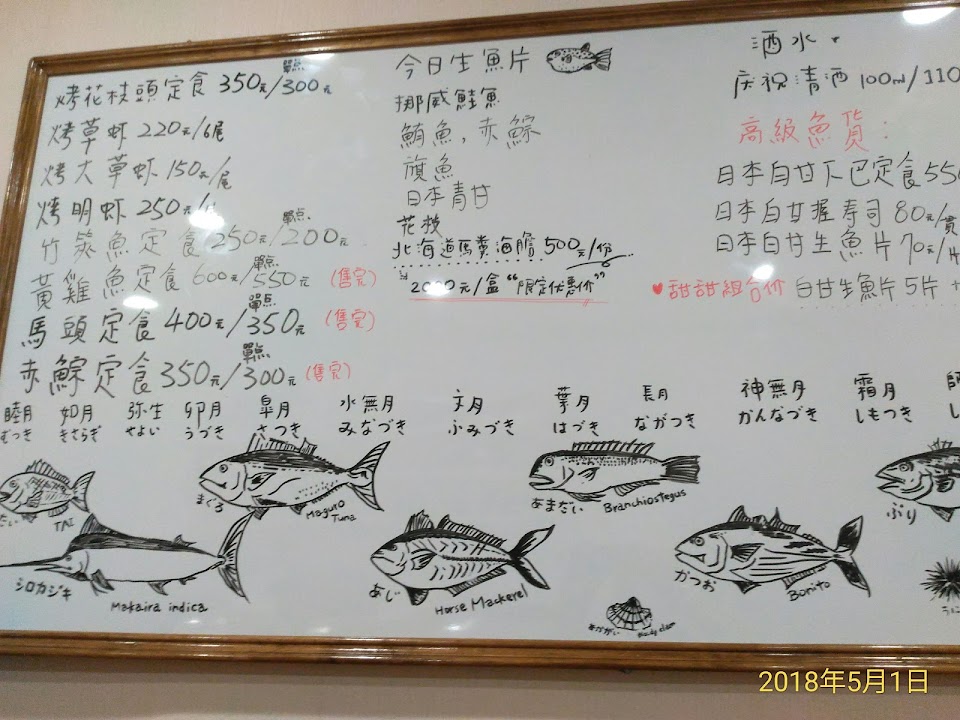 烤花枝頭定食 350元/單点300元
烤草虾 220元/6尾
烤大草虾 150元/尾
烤明虾 250元/
竹筴魚定食 250元/單点200元
黃雞魚定食 600元/單点550元 (售完)
馬頭定食 400元/單点350元 (售完)
赤鯮定食 350元/單点300元 (售完)
今日生魚片
挪威鮭魚
鮪魚, 赤鯮
旗魚
日本青甘
花枝
北海道馬糞海膽 500元/份
2000元/盒 "限定优惠价"
酒水
庆祝清酒 100ml/110
高級魚貨:
日本白甘下巴定食 550
日本白甘握寿司 80元/貫
日本白甘生魚片 70元/片
♥甜甜組合价 白甘生魚片5片 +
睦月 如月 弥生 卯月 皐月 水無月 文月 葉月 長月 神無月 霜月 師
むつき きさらぎ やよい うづき さつき みなづき ふみづき はづき ながつき かんなづき しもつき し
たい TAI
まぐろ Maguro Tuna
あまだい Branchiostegus
ぶり
シロカジキ Makaira indica
あじ Horse Mackerel
かつお Bonito
うに
clam
2018年5月1日